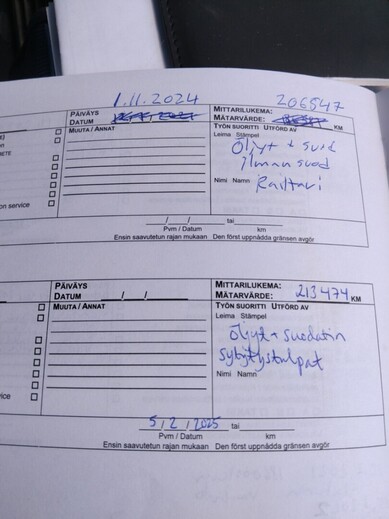 1.11.2024 206547
PÄIVÄYS MITTARILUKEMA:
DATUM MÄTARVÄRDE: KM
MUUTA / ANNAT TYÖN SUORITTI UTFÖRD AV
Leima Stämpel
Öljyt + suod
ilman suod
Nimi Namn Raittari
on service
/ / tai
Pvm / Datum km
Ensin saavutetun rajan mukaan Den först uppnådda gränsen avgör
PÄIVÄYS MITTARILUKEMA:
DATUM / / MÄTARVÄRDE: 213474 KM
MUUTA / ANNAT TYÖN SUORITTI UTFÖRD AV
Leima Stämpel
Öljyt + suodatin
sytytystulpat
Nimi Namn
5 / 2 / 2025 tai
Pvm / Datum km
Ensin saavutetun rajan mukaan Den först uppnådda gränsen avgör